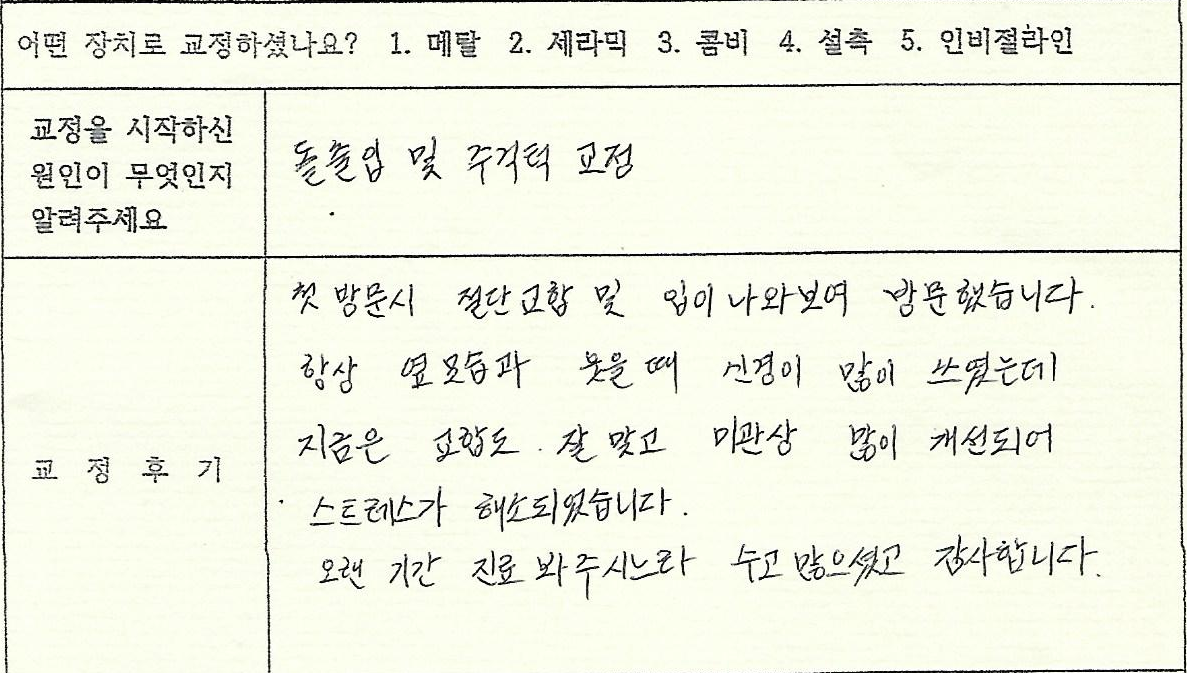 어떤 장치로 교정하셨나요? 1. 메탈 2. 세라믹 3. 콤비 4. 설측 5. 인비절라인
교정을 시작하신
원인이 무엇인지
알려주세요
돌출입 및 주걱턱 교정
교 정 후 기
첫 방문시 절단교합 및 입이 나와보여 방문했습니다.
항상 옆모습과 웃을때 신경이 많이 쓰였는데
지금은 교합도 잘 맞고 미관상 많이 개선되어
스트레스가 해소되었습니다.
오랜 기간 진료 봐주시느라 수고 많으셨고 감사합니다.